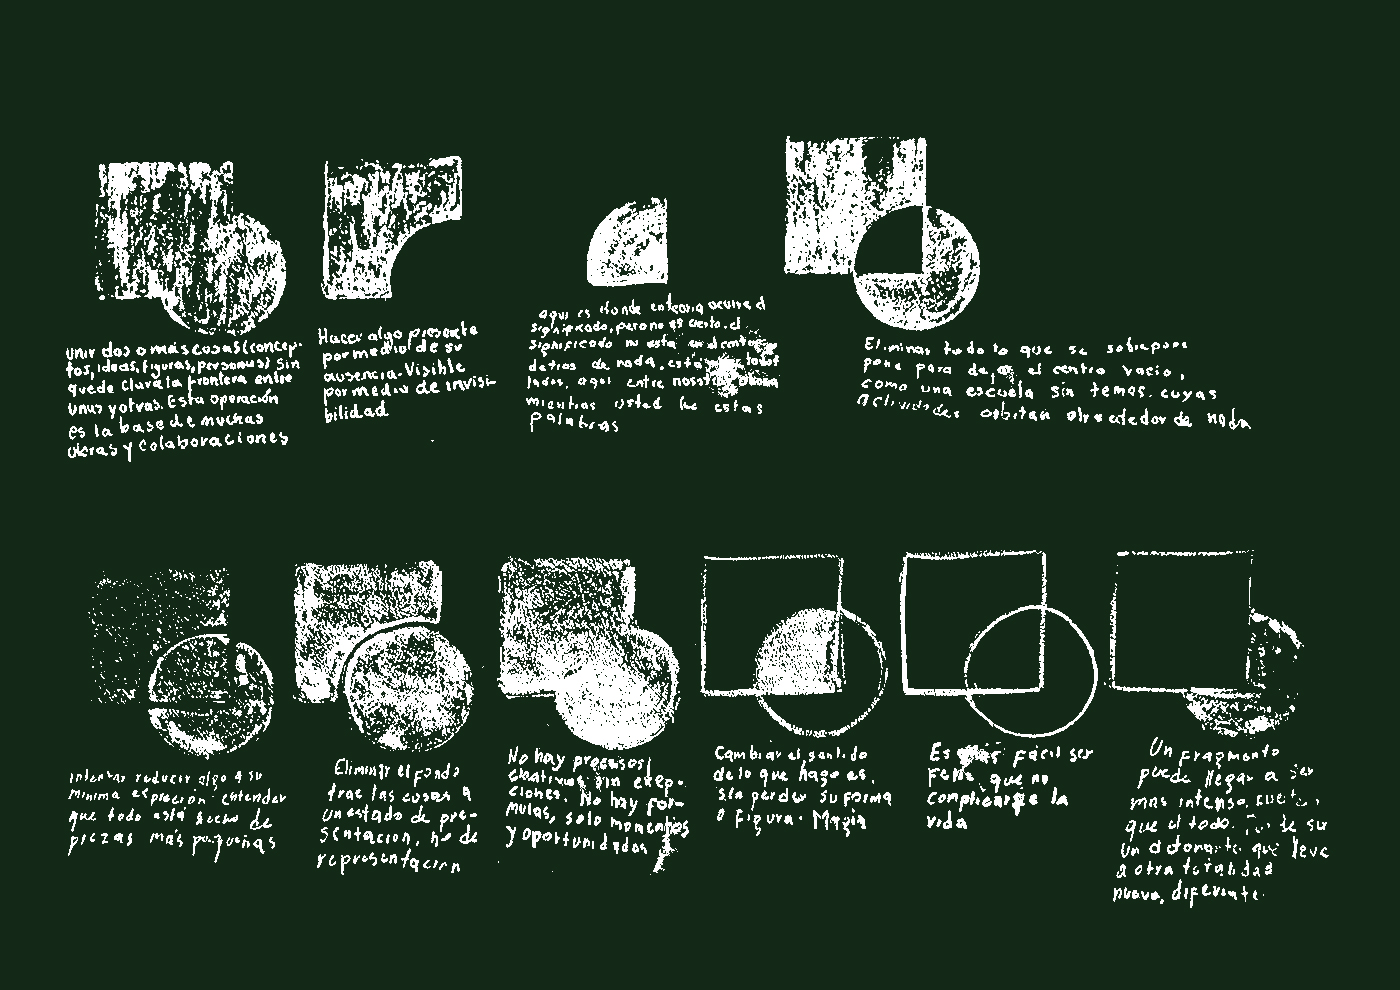 unir dos o más cosas (concep-
tos, ideas, figuras, personas) sin
quede clara la frontera entre
unas y otras. Esta operación
es la base de muchas
obras y colaboraciones
Hacer algo presente
por medio de su
ausencia. Visible
por medio de invisi-
bilidad
aquí es donde en teoría ocurre el
significado, pero no es cierto. el
significado no está
detrás de nada, está todos
lados, aquí entre nosotros ahora
mientras usted lee estas
palabras
Eliminar todo lo que se sobrepone
pone para dejar el centro vacío,
como una escuela sin temas. cuyas
actividades orbitan alrededor de nada
intentar reducir algo a su
mínima expresión entender
que todo está hecho de
piezas más pequeñas
Eliminar el fondo
trae las cosas a
un estado de pre-
sentación, no de
representación
No hay procesos
creativos sin excep-
ciones. No hay for-
mulas, solo momentos
y oportunidades
Cambiar el sentido
de lo que hago es,
sin perder su forma
o figura. Magia
Es más fácil ser
feliz, que no
complicarse la
vida
Un fragmento
puede llegar a ser
más intenso
que el todo. de su
un detonante que lleve
a otra totalidad
nueva, diferente.